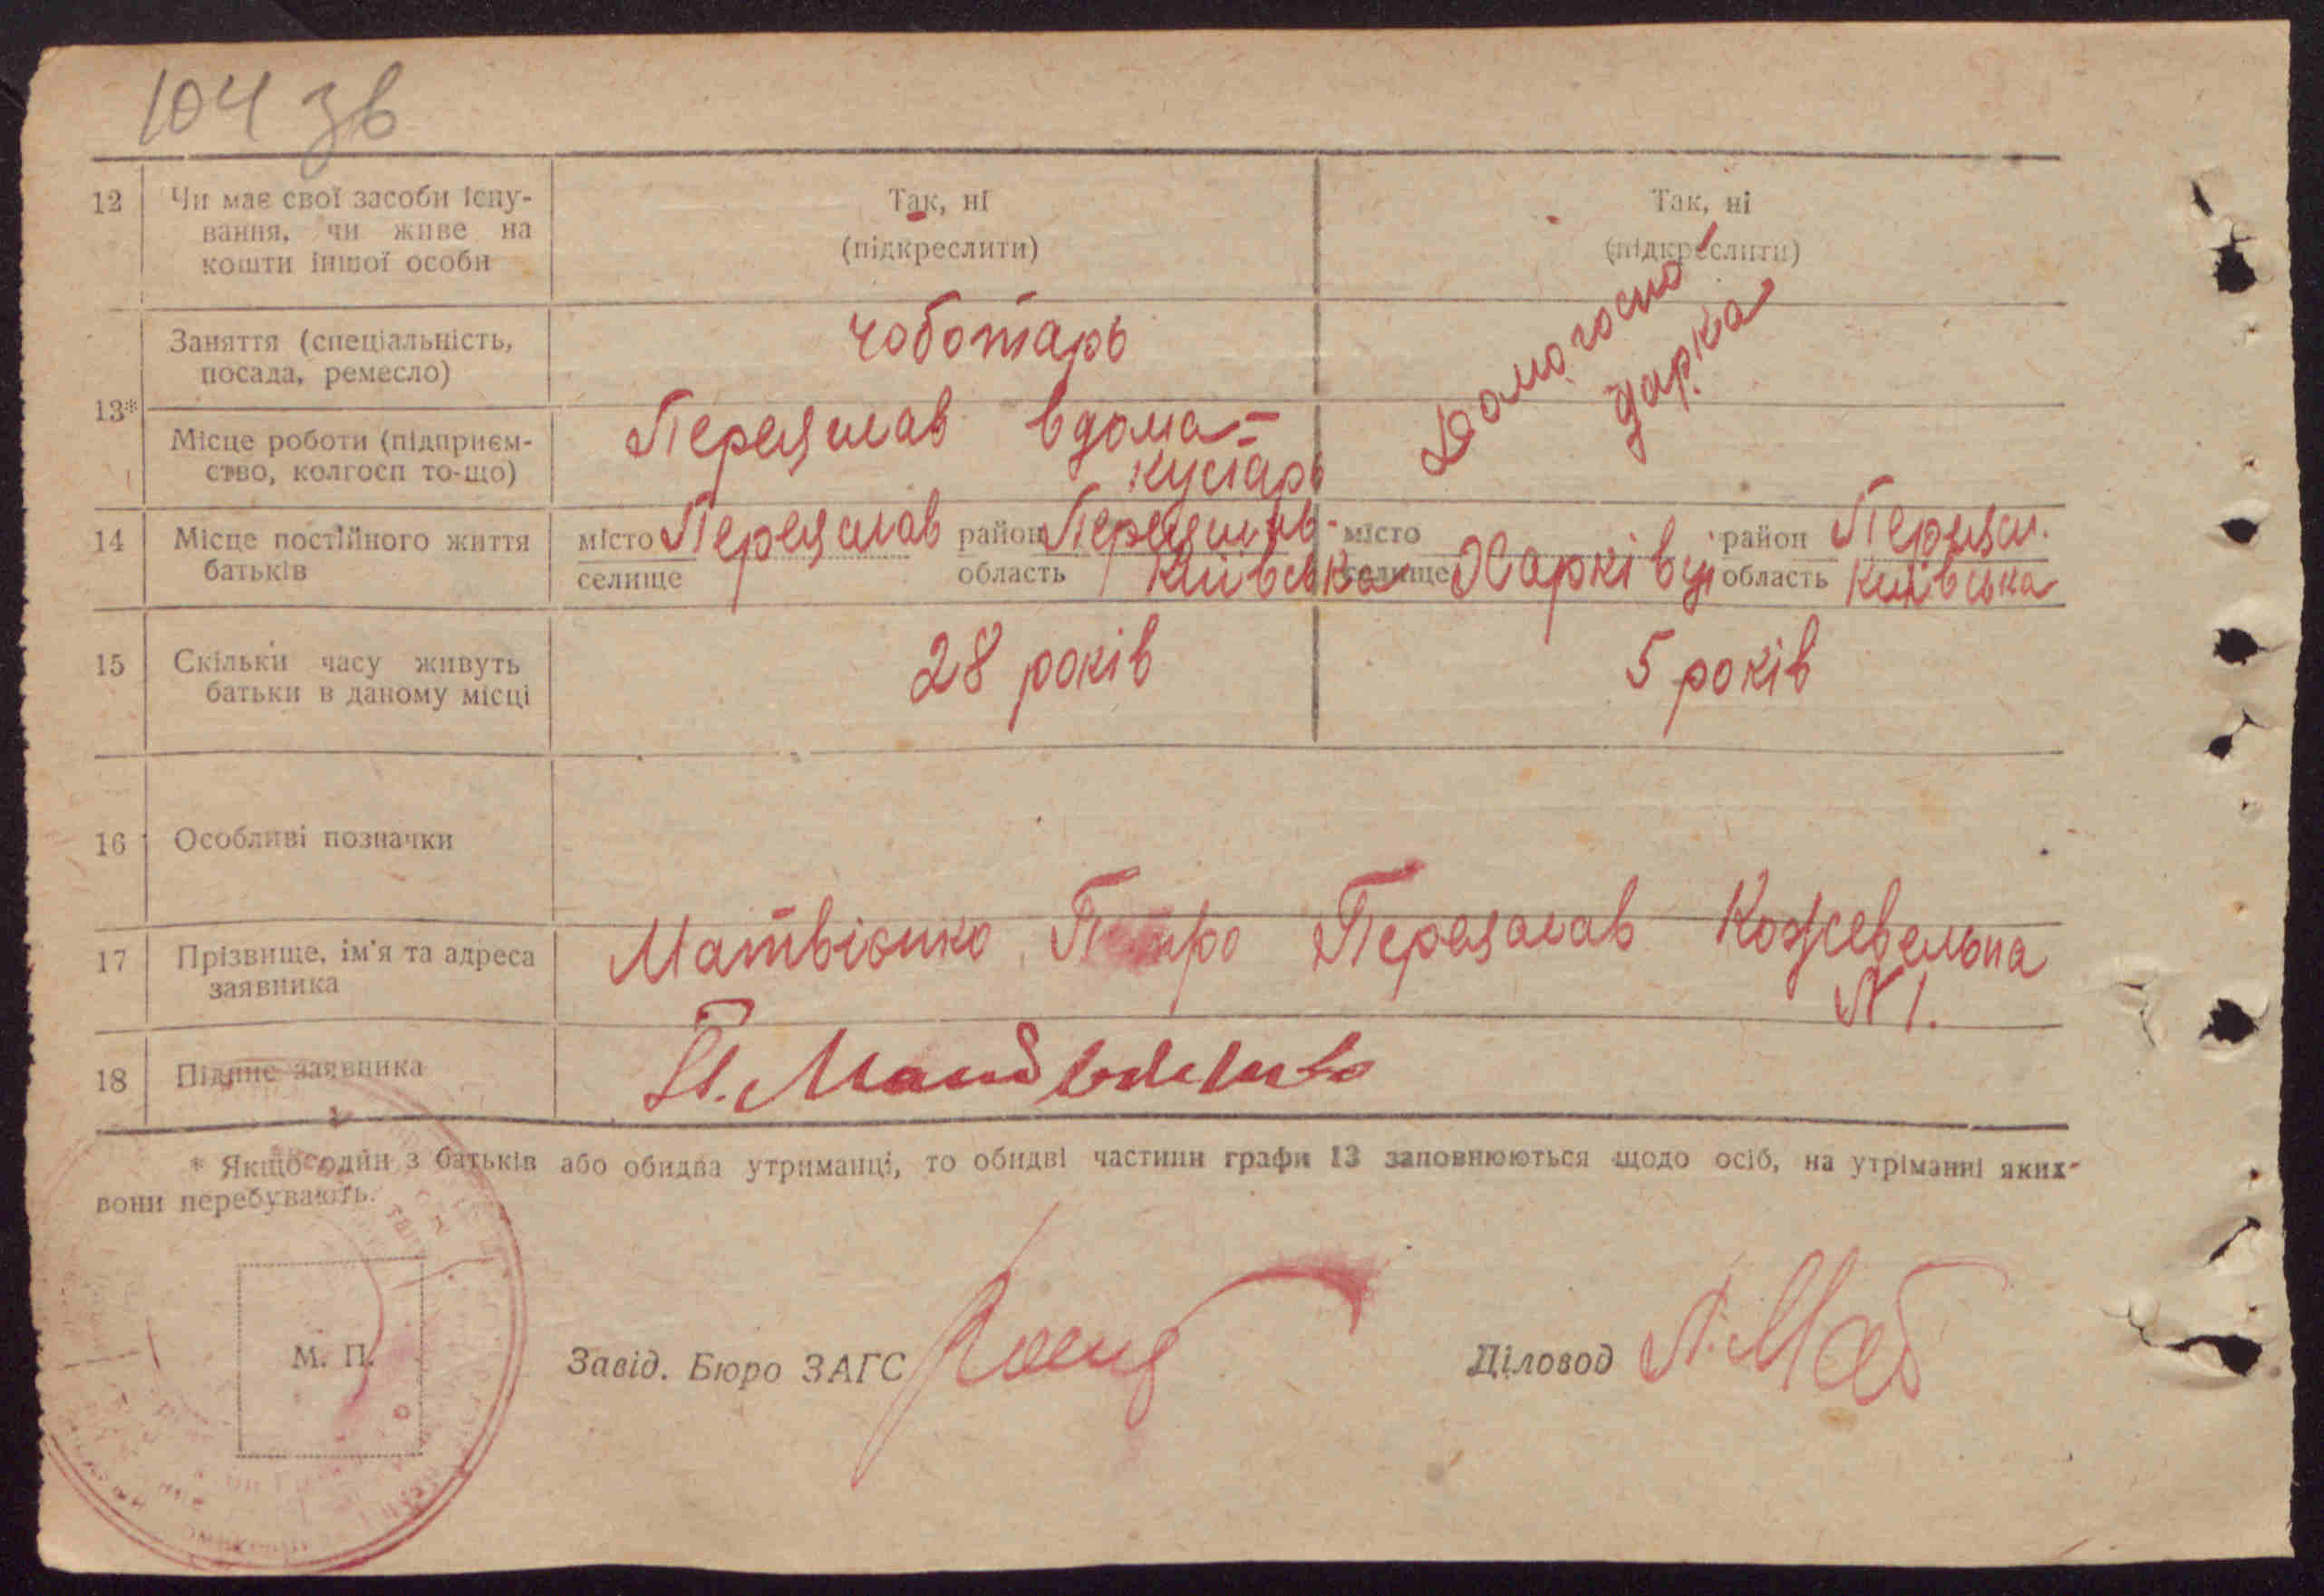 104 зв
12 Чи має свої засоби існу- Так, ні Так, ні
вання, чи живе на (підкреслити) (підкреслити)
кошти іншої особи
13* Заняття (спеціальність, чоботарь Домогоспо
посада, ремесло) дарка
Місце роботи (підприєм- Переяслав вдома-
ство, колгосп то-що) кустарь
14 Місце постійного життя місто Переяслав район Переяслав- місто район Переясл.
батьків селище область Київська селище Харківці область Київська
15 Скільки часу живуть 28 років 5 років
батьки в даному місці
16 Особливі позначки
17 Прізвище, ім'я та адреса Матвієнко Петро Переяслав Кожевельна
заявника N 1.
18 Підпис заявника П. Матвієнко
* Якщо один з батьків або обидва утриманці, то обидві частини графи 13 заповнюються щодо осіб, на утріманні яких
вони перебувають.
М. П.
Завід. Бюро ЗАГС Діловод